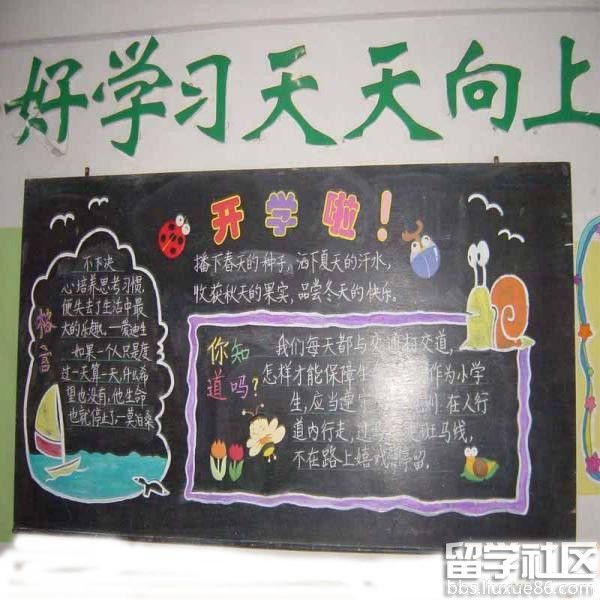 好学习天天向上
开学啦！
播下春天的种子，洒下夏天的汗水，
收获秋天的果实，品尝冬天的快乐。
格言
不下决
心培养思考习惯，
便失去了生活中最
大的乐趣，一爱迪生
如果一个人只是度
过一天算一天，什么希
望也没有，他生命
也就停止了，一莫泊桑
你知
道吗？
我们每天都与交通打交道，
怎样才能保障生 作为小学
生，应当遵 在人行
道内行走，过 斑马线，
不在路上嬉戏 停留，
留学社区
bbs.liuxue86.com